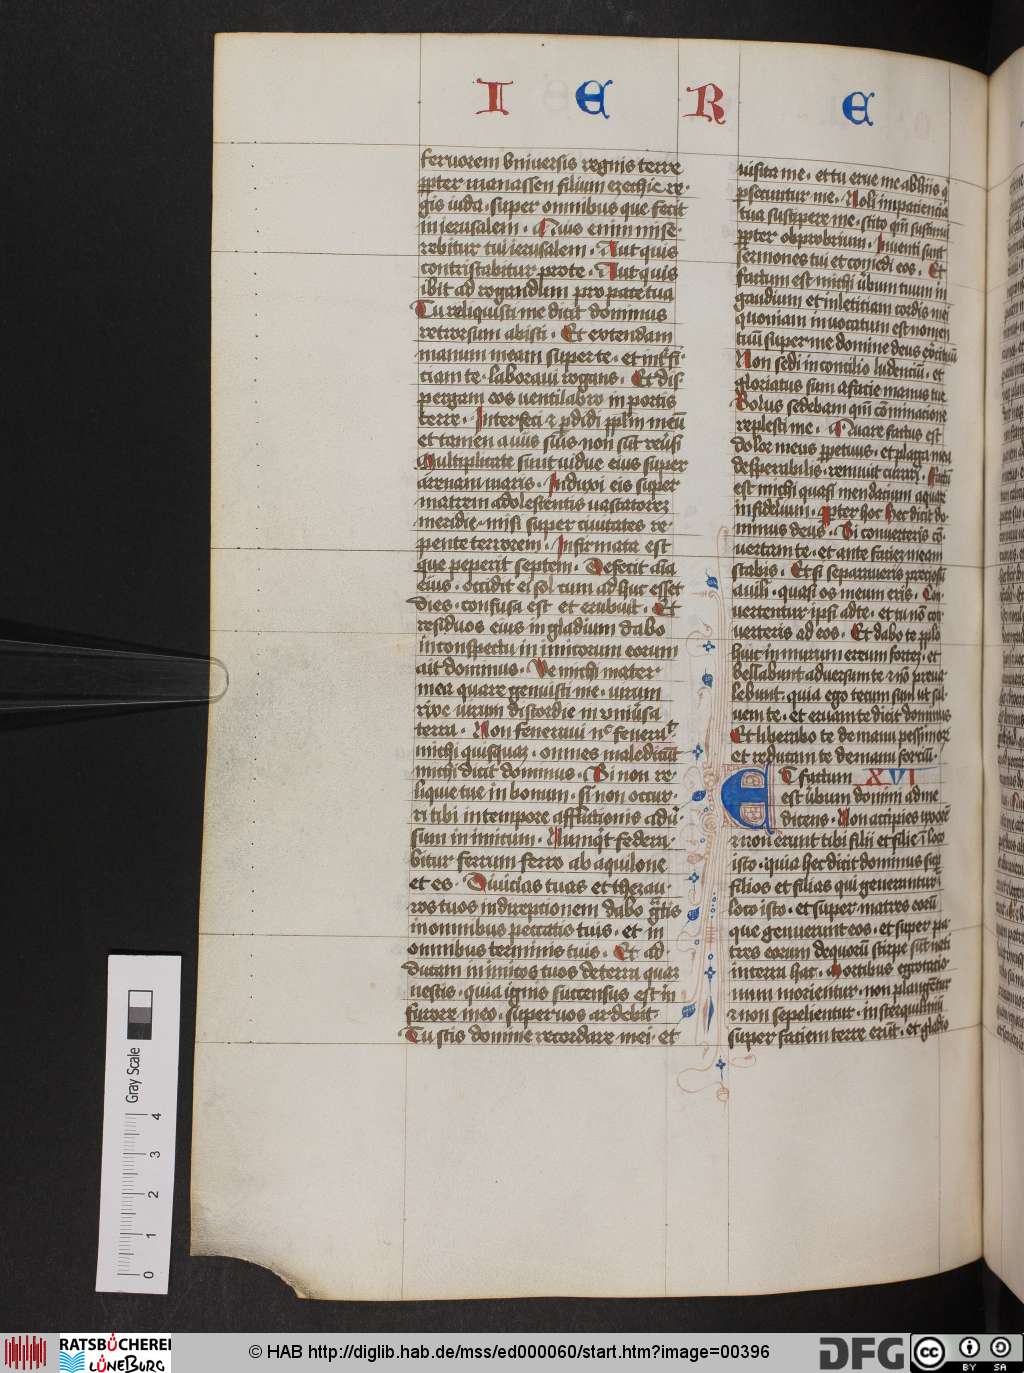 I E R E
feruorem vniuersis regnis terre
ppter manassen filium ezechie re-
gis iuda · super omnibus que fecit
in ierusalem · Quis enim mise-
rebitur tui ierusalem · Aut quis
contristabitur pro te · Aut quis
ibit ad rogandum pro pace tua
Tu reliquisti me dicit dominus
retrorsum abisti · Et extendam
manum meam super te · et int̄fi-
ciam te · laboraui rogans · Et dis
pergam eos ventilabro in portis
terre · Interfeci et pdidi pplm meū
et tamen a uiis suis non sūt reūsi
Multiplicate sunt uidue eius super
arenam maris · Induxi eis super
matrem adolescentis vastatorez
meridie · misi super ciuitates re-
pente terrorem · Infirmata est
que peperit septem · Defecit aīa
eius · occidit ei sol cum adhuc esset
dies · confusa est et erubuit · Et
residuos eius in gladium dabo
in conspectu inimicorum eorum
ait dominus · Ve michi mater
mea quare genuisti me · uirum
rixe uirum discordie in vniūsa
terra · Non feneraui nec feneraᵗ
michi quisquam · omnes maledicūt
michi dicit dominus · Si non re-
liquie tue in bonum · si non occur-
ri tibi in tempore afflictionis adū-
sum inimicum · Numqͥt federa-
bitur ferrum ferro ab aquilone
et es · Diuicias tuas et thezau-
ros tuos in direptionem dabo gͣtis
in omnibus peccatis tuis · et in
omnibus terminis tuis · Et ad-
ducam inimicos tuos de terra quaz
nescis · quia ignis succensus est in
furore meo · super uos ardebit ·
Tu scis domine recordare mei · et
uisita me · et tu erue me ab hiis q̄
psecuntur me · Noli in paciencia
tua suscipere me · scito qm̄ sustinui
ppter obprobrium · Inuenti sunt
sermones tui et comedi eos · Et
factum est michi ūbum tuum in
gaudium et in leticiam cordis mei
quoniam inuocatum est nomen
tuū super me domine deus exercituū
Non sedi in consilio ludenciū · et
gloriatus sum a facie manus tue
Solus sedebam qm̄ cōminacione
replesti me · Quare factus est
dolor meus ppetuus · et plaga mea
desperabilis · renuit curari · Facta
est michi quasi mendacium aquar
infidelium · Ppter hoc hec dicit do-
minus deus · Si conuerteris cō-
uertam te · et ante faciem meam
stabis · Et si separaueris preciosū
a uili · quasi os meum eris · Con-
uertentur ipsi ad te · et tu nō con-
uerteris ad eos · Et dabo te pplo
huic in murum ereum fortez · et
bellabunt aduersum te et nō preua
lebunt · quia ego tecum sum ut sal-
uem te · et eruam te dicit dominus
Et liberabo te de manu pessimorū
et redimam te de manu forciū ·
ET factum XVI
est ūbum domini ad me
dicens · Non accipies vxorē
et non erunt tibi filii et filie ī loco
isto · quia hec dicit dominus sup
filios et filias qui generantur ī
loco isto · et super matres eorū
que genuerunt eos · et super pa-
tres eorum de quorū stirpe sūt nati
in terra hac · Mortibus egrotacio-
num morientur · non plangētur
et non sepelientur · in sterquiliniū
super faciem terre erūt · et gladio
Gray Scale
4
3
2
1
0
RATSBÜCHEREI
LÜNEBURG
© HAB http://diglib.hab.de/mss/ed000060/start.htm?image=00396
DFG
cc BY SA